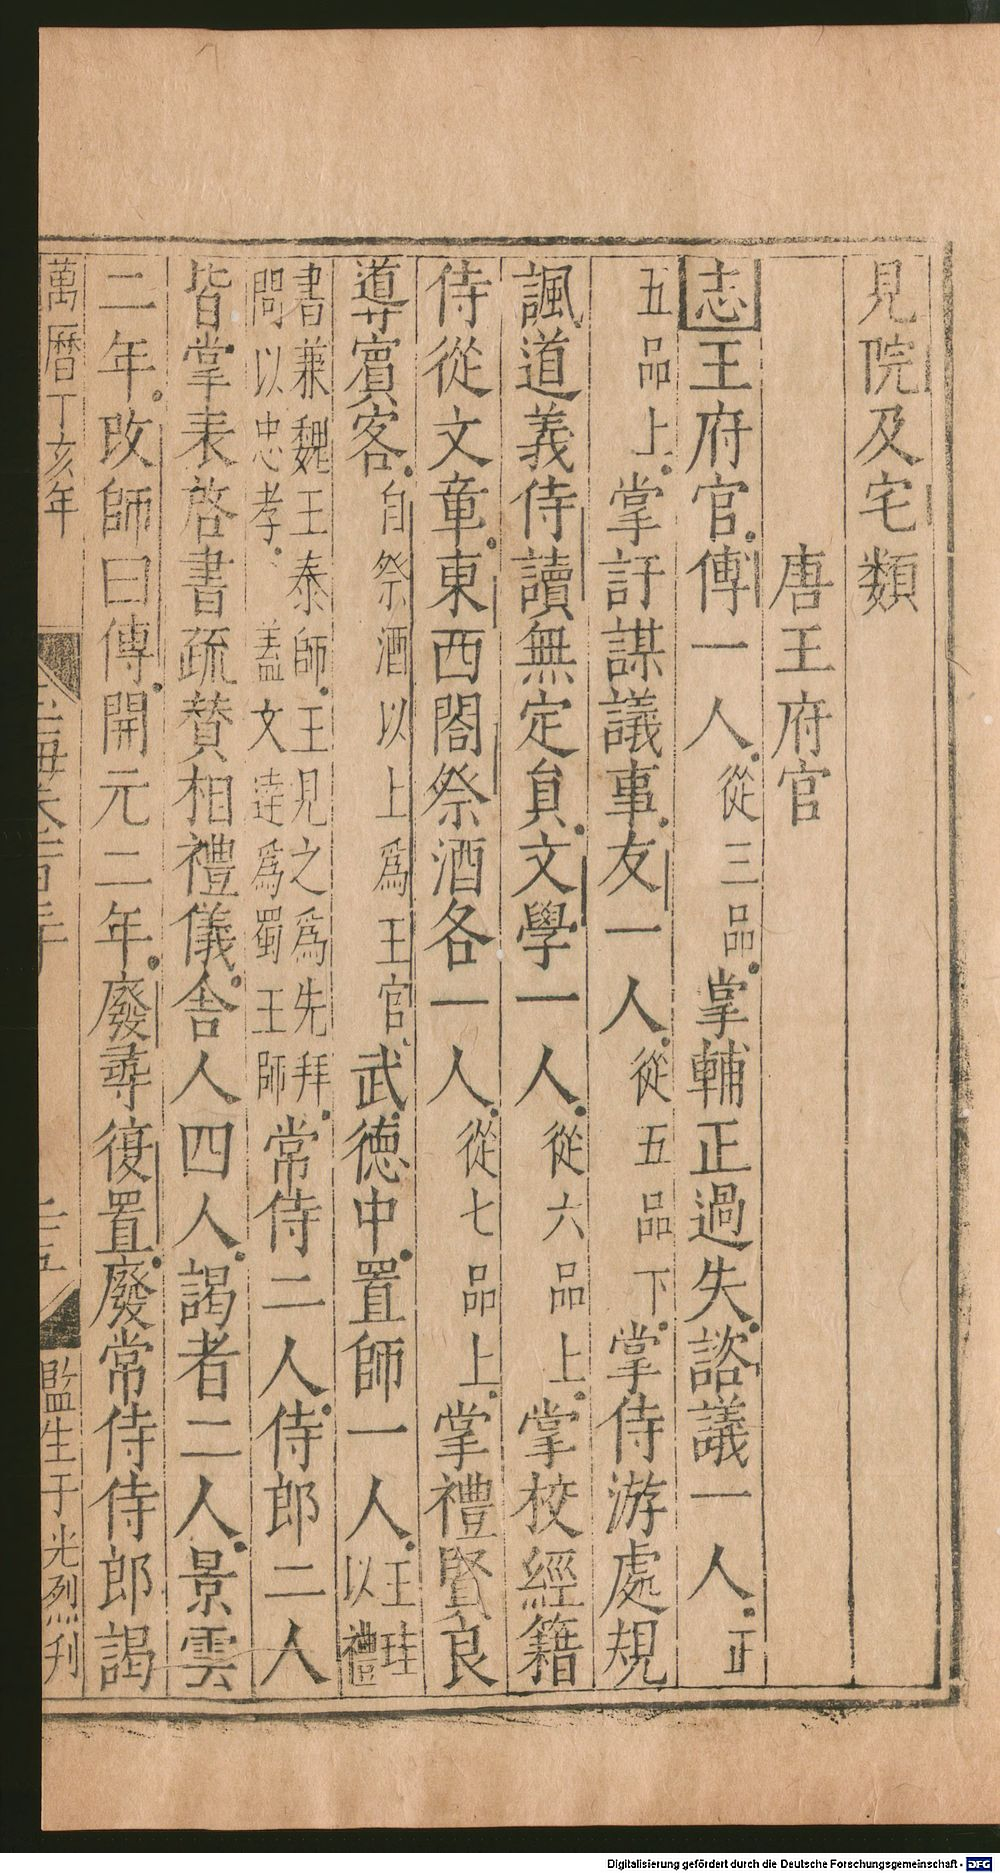 見院及宅類
唐王府官
志王府官傅一人從三品掌輔正過失諮議一人正
五品上掌訏謀議事友一人從五品下掌侍游處規
諷道義侍讀無定員文學一人從六品上掌校經籍
侍從文章東西閤祭酒各一人從七品上掌禮賢良
導賓客自祭酒以上爲王官武德中置師一人王珪以禮
書兼魏王泰師王見之爲先拜問以忠孝蓋文達爲蜀王師常侍二人侍郎二人
皆掌表啓書疏贊相禮儀舍人四人謁者二人景雲
二年改師曰傅開元二年廢尋復置廢常侍侍郎謁
萬曆丁亥年
監生于光烈刋
Digitalisierung gefördert durch die Deutsche Forschungsgemeinschaft - DFG